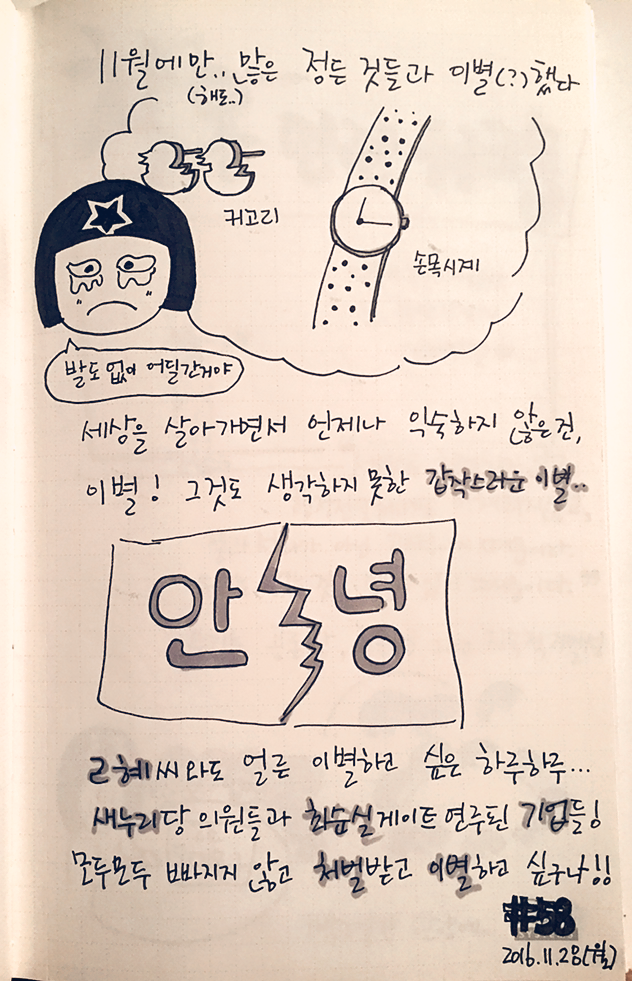 11월에만.. 많은 정든 것들과 이별(?)했다
(해도..)
귀고리
손목시계
발도 없이 어딜간거야
세상을 살아가면서 언제나 익숙하지 않은건,
이별! 그것도 생각하지 못한 갑작스러운 이별..
안녕
근혜씨와도 얼른 이별하고 싶은 하루하루...
새누리당 의원들과 최순실게이트 연루된 기업들!
모두모두 빠지지 않고 처벌받고 이별하고 싶구나!!
#58
2016.11.28(월)